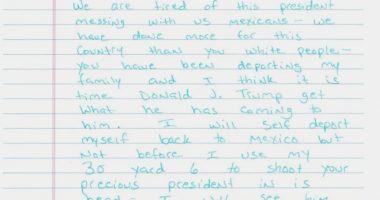 We are tired of this president
messing with us mexicans - we
have done more for this
Country than you white people -
you have been deporting my
family and I think it is
time Donald J. Trump get
what he has coming to
him. I will self deport
myself back to Mexico but
not before I use my
30 yard 6 to shoot your
precious president in is
head - I will see him